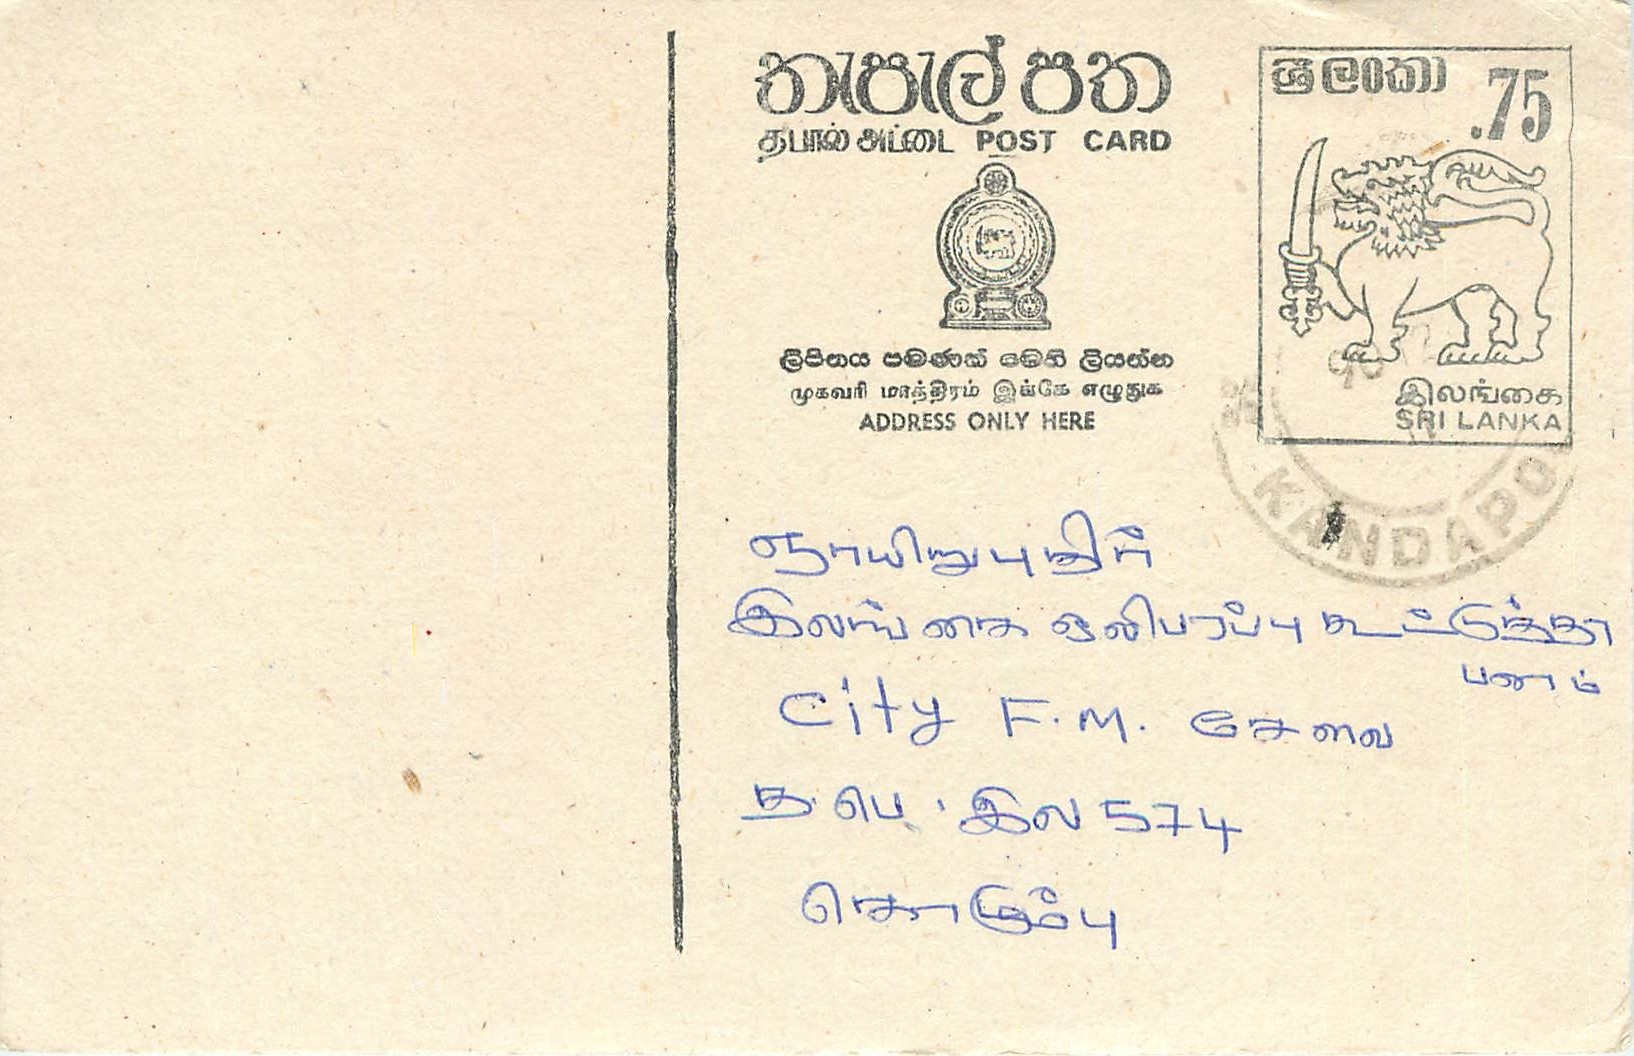 තැපැල් පත
தபால் அட்டை POST CARD
ලිපිනය පමණක් මෙහි ලියන්න
முகவரி மாத்திரம் இங்கே எழுதுக
ADDRESS ONLY HERE
ශ්‍රී ලංකා
.75
இலங்கை
SRI LANKA
KANDAPO
ஞாயிறு புதிர்
இலங்கை ஒலிபரப்பு கூட்டுத்தா
பனம்
City F.M. சேவை
த. பெ. இல 574
கொழும்பு